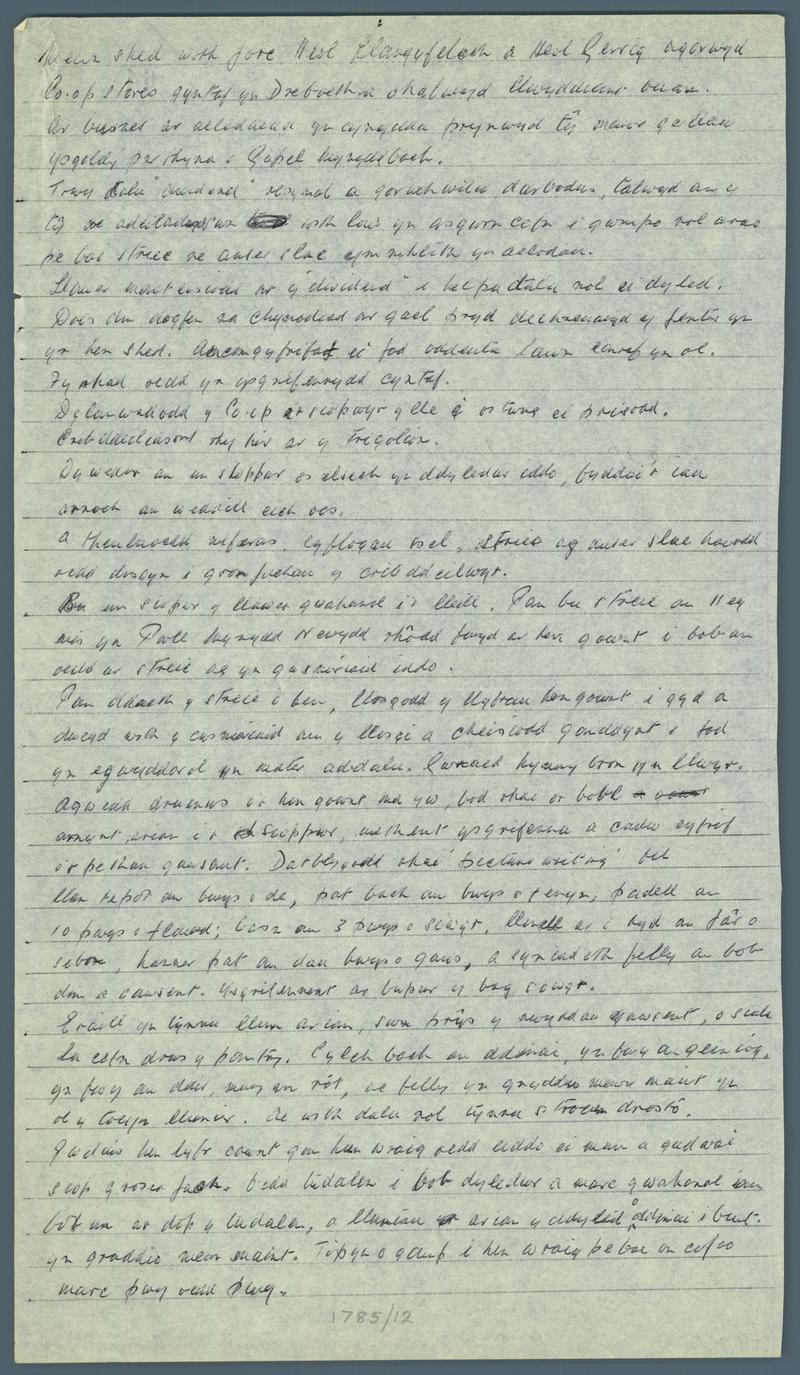 Mewn shed wrth fore Heol Llangyfelach a Heol Gerrig agorwyd
Co-op Stores gyntaf yn Dreboeth a chafwyd llwyddiant buan.
Ar busnes ar aelodaeth yn cynyddu prynwyd tŷ mawr gerllaw
ysgoldy perthyna i Gapel Mynyddbach.
Trwy dalu "dividend" resymol a goruchwilio darbodus, talwyd am y
tŷ ac adeiladau wrth law yn asgwrn cefn i gwympo nol arno
pe bai streic ne amser slac ymhlith yn aelodau.
Llawer manteisiodd ar y "dividend" i helpu dalu nol ei dyled.
Does dim dogfen na chysodead ar gael pryd dechreuwyd y fenter yn
yr hen shed. Amcangyfrifaf ei fod oddeutu lawn canrif yn ol.
Fy nhad oedd yn ysgrifennydd cyntaf.
Dylanwadodd y Co-op ar siopwyr y lle i ostwng ei prisoad.
Cribddeiliasant rhy hir ar y trigolion.
Dywedir am un shoppwr os elsech yn ddyledus iddo, byddai'r iau
arnoch am weddill eich oes.
A theuluoedd niferus, cyflogau isel, streic ag amser slac hawdd
oedd disgyn i grafangau y cribddeilwyr.
Bu un siopwr y llawer gwahanol i'r lleill. Pan bu streic am 11 eg
mis yn Pwll Mynydd Newydd rhôdd fwyd ar hen gownt i bob un
oedd ar streic ag yn gwsmeriaid iddo.
Pan ddaeth y streic i ben, llosgodd y llyfrau hen gownt i gyd a
dweyd wrth y cwsmeriaid am y llosgi a cheisiodd ganddynt i fod
yn egwyddorol yn mater addalu. Gwnaed hynny bron yn llwyr.
Agwedd druenus o'r hen gownt yw, bod rhai or bobl
arnynt arian i'r sioppwr, methent ysgrifennu a cadw cyfrif
o'r pethau gawsant. Datblygodd rhai 'picture writing' fel
llun tepot am bwys o de, pot bach am bwys o fenyn, padell am
10 pwys o flawd; basn am 3 pwys o siwgr, llinell ar i hyd am far o
sebon, hanner pat am dau bwys o gaws, a symledeth felly am bob
dim a cawsent. Ysgrifennent ar bapur y bag siwgr.
Eraill yn tynnu llun arian, swm prîs y nwyddau gawsent, o sialc
la cefn drws y pantry. Cylch bach am ddimai, yn fwy am geiniog,
yn fwy am dair, mwy am rôt, ac felly yn gryddio mewn maint yn
ol y tocyn llawer. Ac wrth dalu nol tynnu strocen drosto.
Gwelais hen lyfr cownt gan hen wraig oedd eiddo ei mam a gadwai
siop groser fach. Oedd tudalen i bob dyledwr a marc gwahanol i un
bob un ar dop y tudalen, a lluniau arian y ddyled o ddimai i bunt.
yn graddio mewn maint. Tipyn o gamp i hen wraig pe bae yn cofio
marc pwy oedd pwy.
1785/12